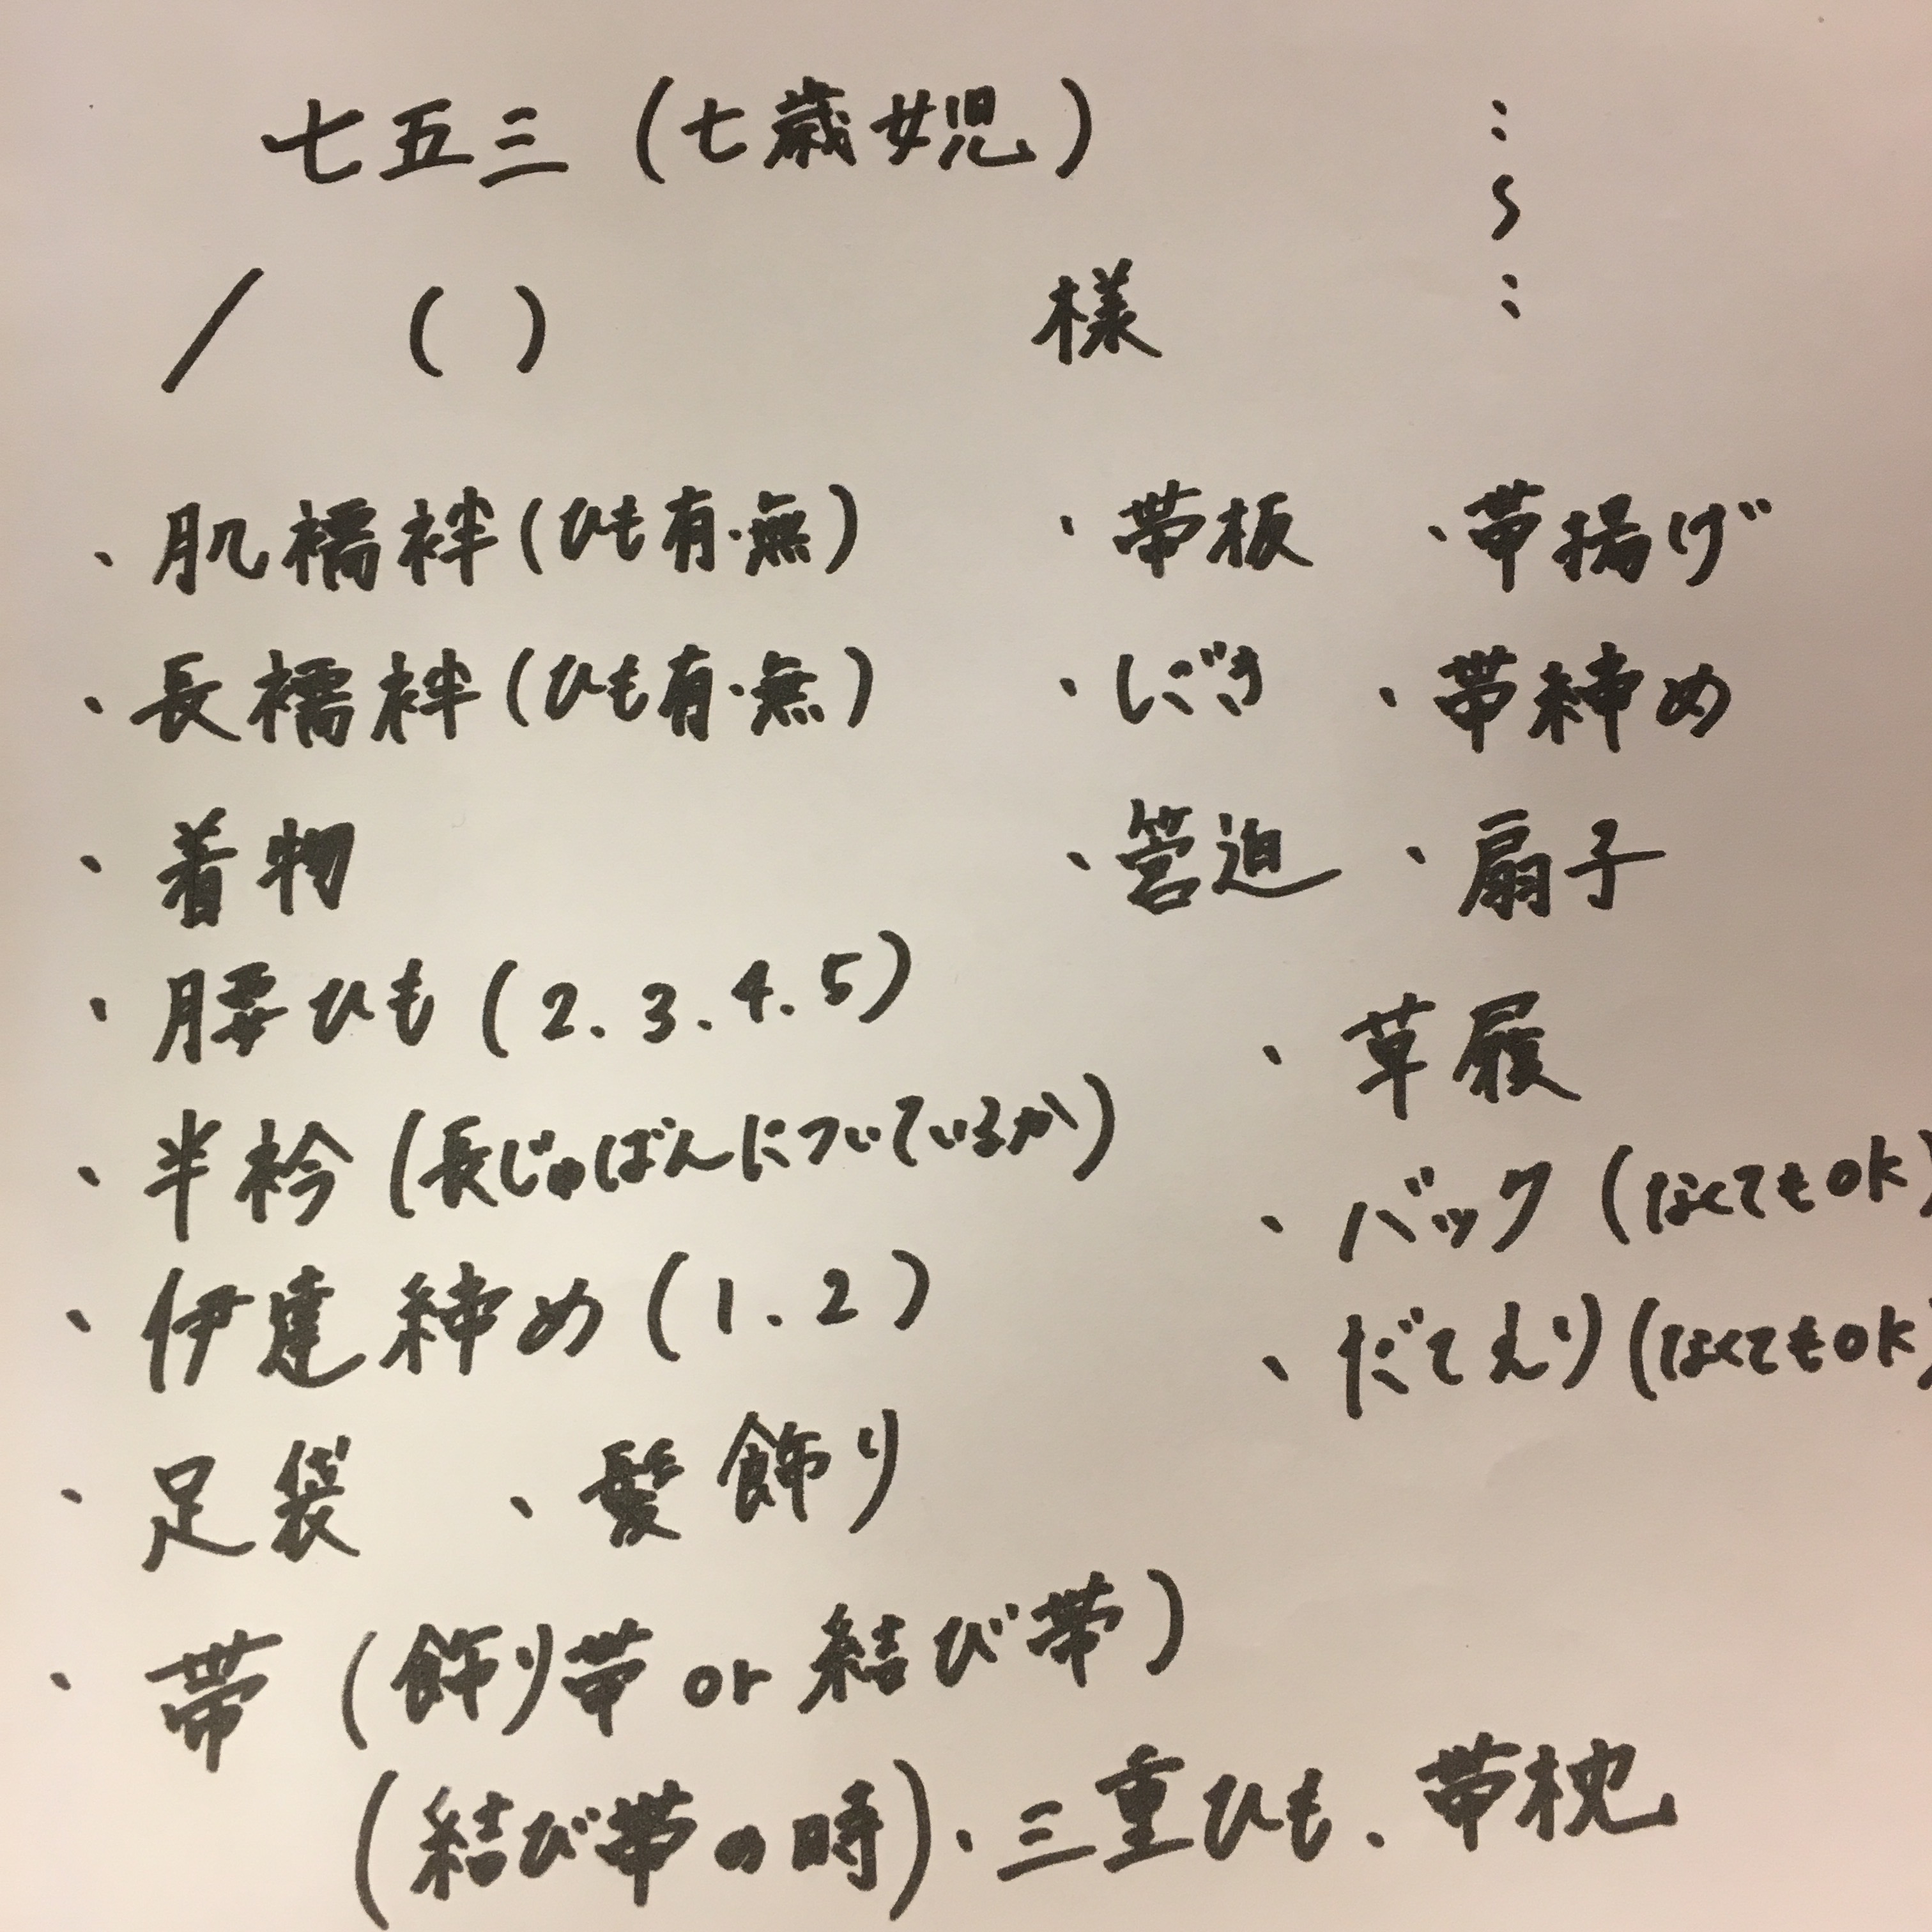 七五三(七歳女児)
:
〜
:
/ ( ) 様
・肌襦袢(ひも有・無)
・長襦袢(ひも有・無)
・着物
・腰ひも(2.3.4.5)
・半衿(長じゅばんについているか)
・伊達締め(1.2)
・足袋 ・髪飾り
・帯(飾り帯or結び帯)
(結び帯の時)・三重ひも、帯枕
・帯板 ・帯揚げ
・しごき ・帯締め
・筥迫 ・扇子
・草履
・バック(なくてもOK)
・だてえり(なくてもOK)